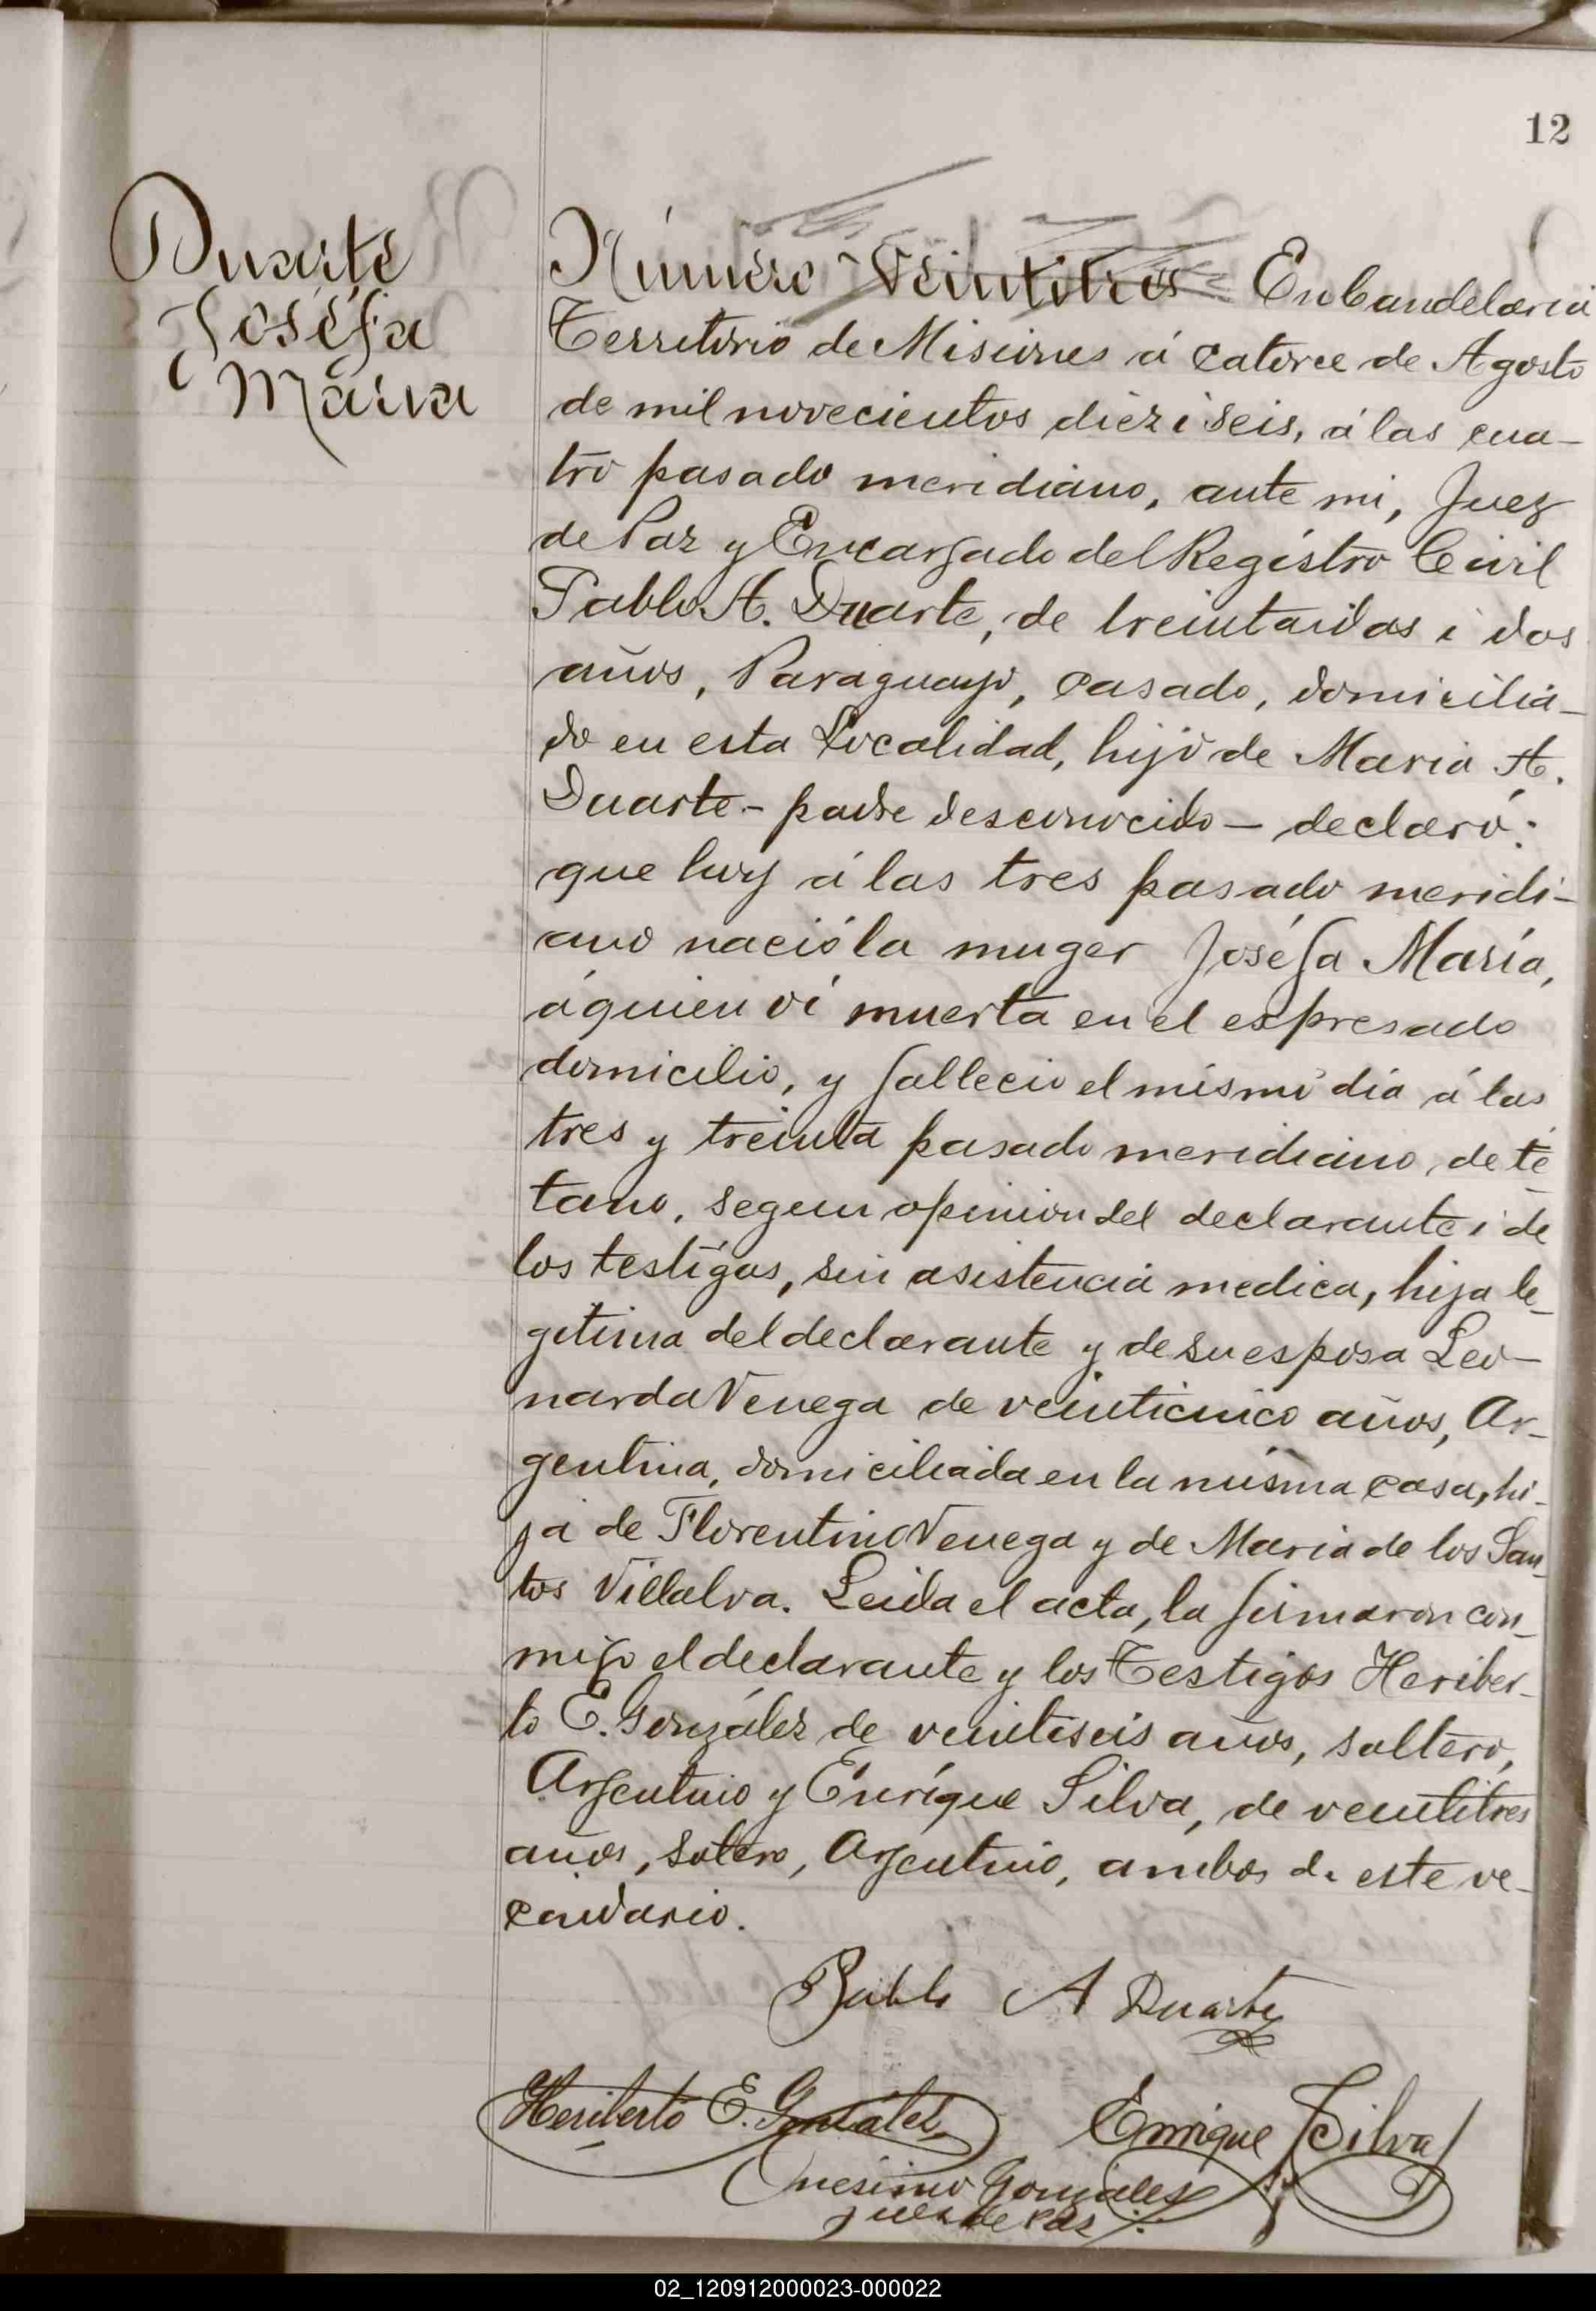 12
Duarte
Joséfa
María
Número Veintitres En Candelaria
Territorio de Misiones á catorce de Agosto
de mil novecientos diez i seis, á las cua-
tro pasado meridiano, ante mi, Juez
de Paz y Encargado del Registro Civil
Pablo A. Duarte, de treintaidos i dos
años, Paraguayo, casado, domicilia-
do en esta Localidad, hijo de Maria A.
Duarte - padre desconocido - declaró:
que hoy á las tres pasado meridi-
ano nació la muger Joséfa María,
á quien ví muerta en el espresado
domicilio, y fallecio el mismo dia á las
tres y treinta pasado meridiano, de té
tano, segun opinion del declarante i de
los testigos, sin asistencia medica, hija le-
gitima del declarante y de su esposa Leo-
narda Venega de veinticinco años, Ar-
gentina, domiciliada en la misma casa, hi-
ja de Florentino Venega y de Maria de los San-
tos Villalva. Leida el acta, la firmaron con-
migo el declarante y los Testigos Heriber-
to E. González de veintiseis años, soltero,
Argentino y Enríque Silva, de veintitres
años, soltero, Argentino, ambos de este ve-
cindario.
Pablo A Duarte
Heriberto E. González
Enrique Silva
Onesimo Gonzales
Juez de Paz
02_120912000023-000022